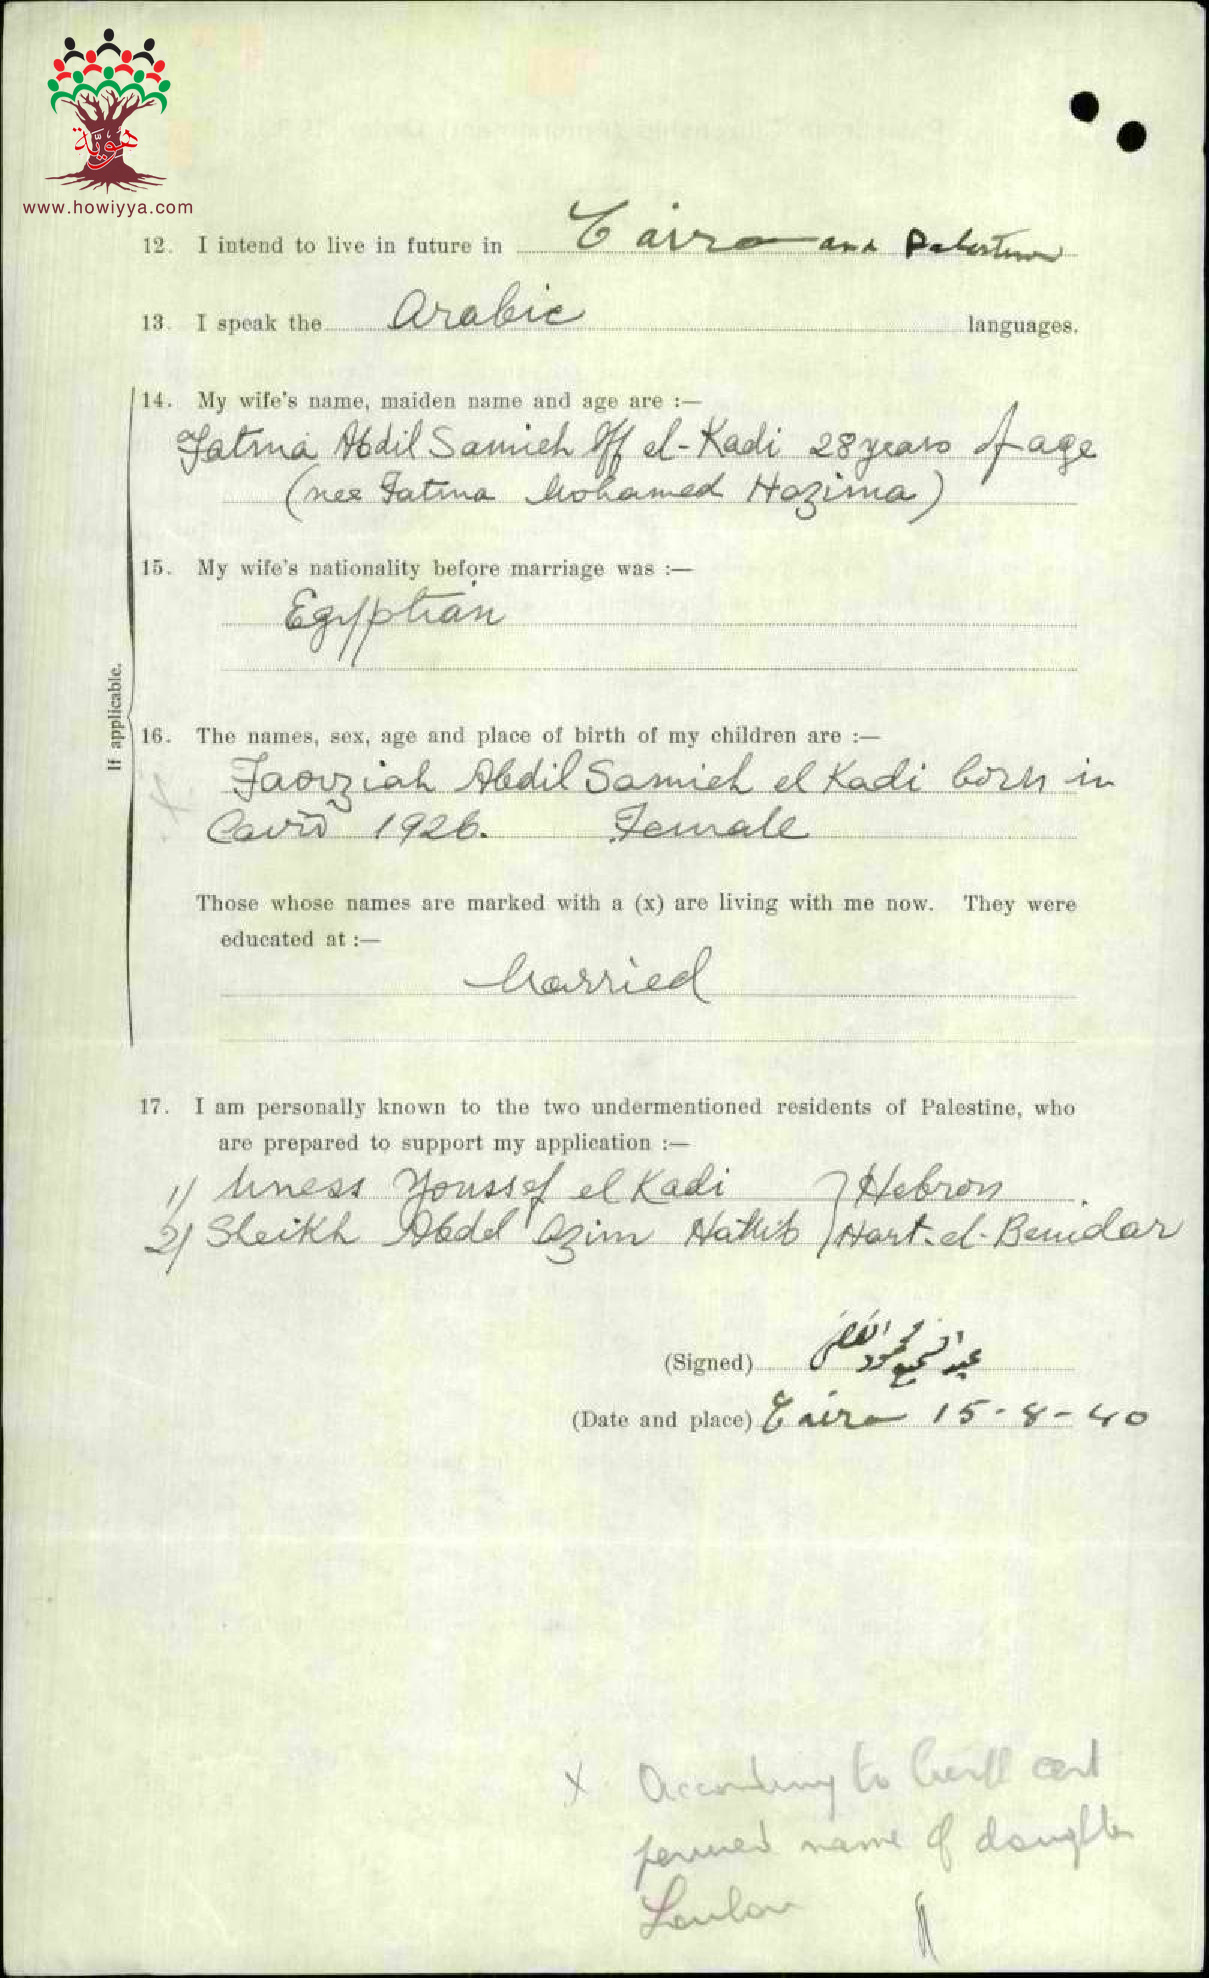 هويّة
www.howiyya.com
12. I intend to live in future in Cairo and Palestine
13. I speak the Arabic languages.
14. My wife's name, maiden name and age are :—
Fatma Abdil Samieh Eff el-Kadi 28 years of age
(nee Fatma Mohamed Hozima)
15. My wife's nationality before marriage was :—
Egyptian
If applicable.
16. The names, sex, age and place of birth of my children are :—
x Faouziah Abdil Samieh el Kadi born in
Cairo 1926. Female
Those whose names are marked with a (x) are living with me now. They were
educated at :—
Married
17. I am personally known to the two undermentioned residents of Palestine, who
are prepared to support my application :—
1) Uness Youssef el Kadi } Hebron
2) Sheikh Abdel Azim Hattib } Hart-el-Benidar
(Signed) عبد السميع محمود القاضي
(Date and place) Cairo 15-8-40
x According to birth cert
name of daughter
Loulou